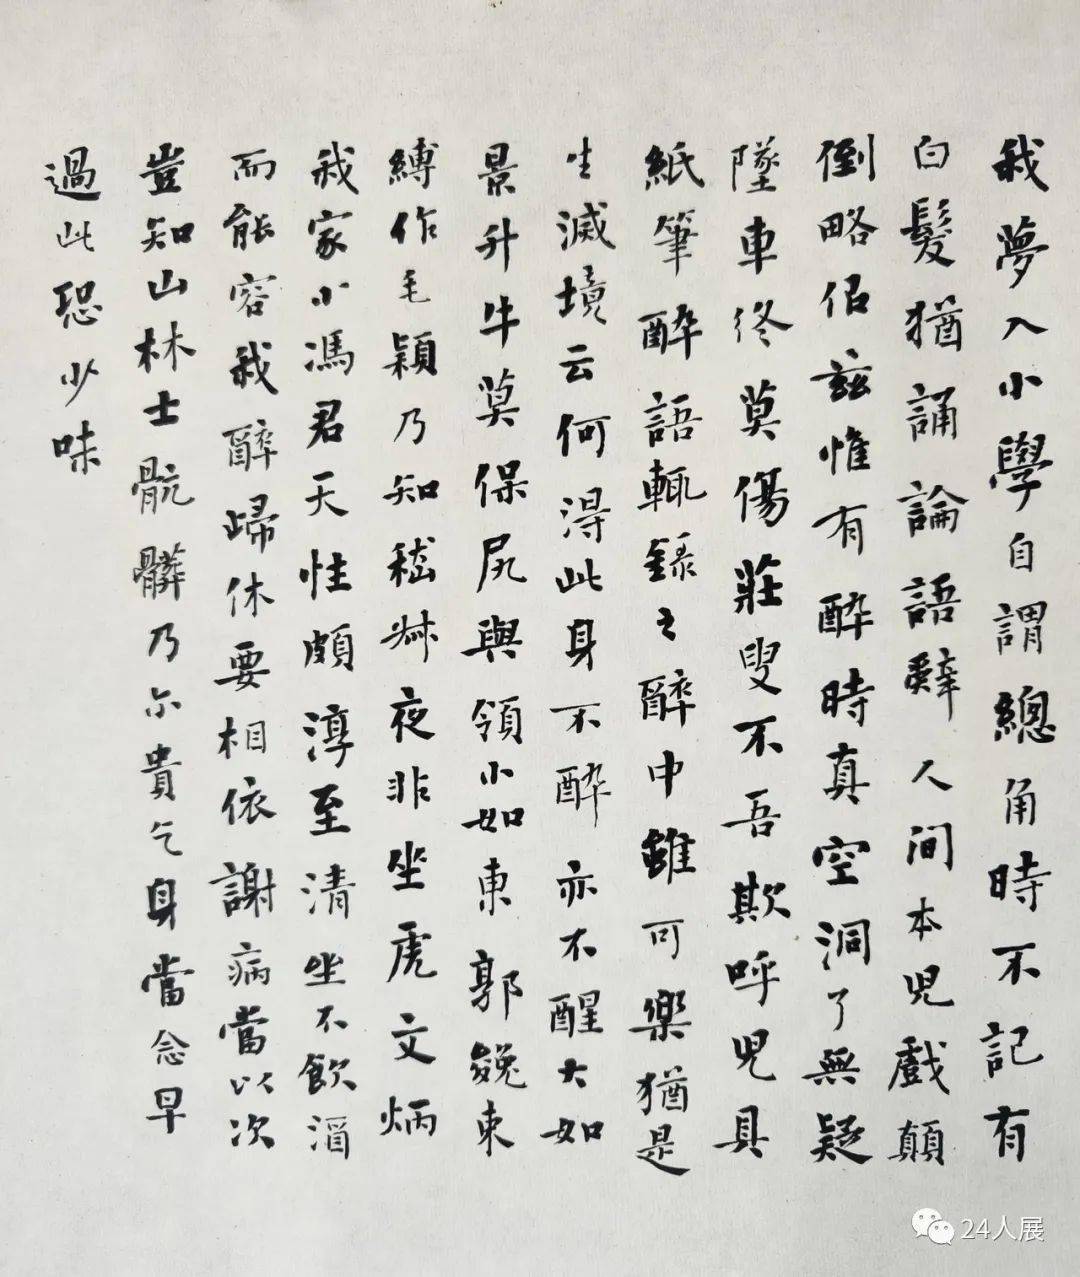 我夢入小學自謂總角時不記有
白髮猶誦論語辭人間本兒戲顛
倒略佀茲惟有醉時真空洞了無疑
墜車終莫傷莊叟不吾欺呼兒具
紙筆醉語輒錄之醉中雖可樂猶是
生滅境云何得此身不醉亦不醒大如
景升牛莫保尻與領小如東郭㕙束
縛作毛穎乃知嵇叔夜非坐虎文炳
我家小馮君天性頗淳至清坐不飲酒
而能容我醉歸休要相依謝病當以次
豈知山林士骯髒乃尔貴乞身當念早
過此恐少味
24人展